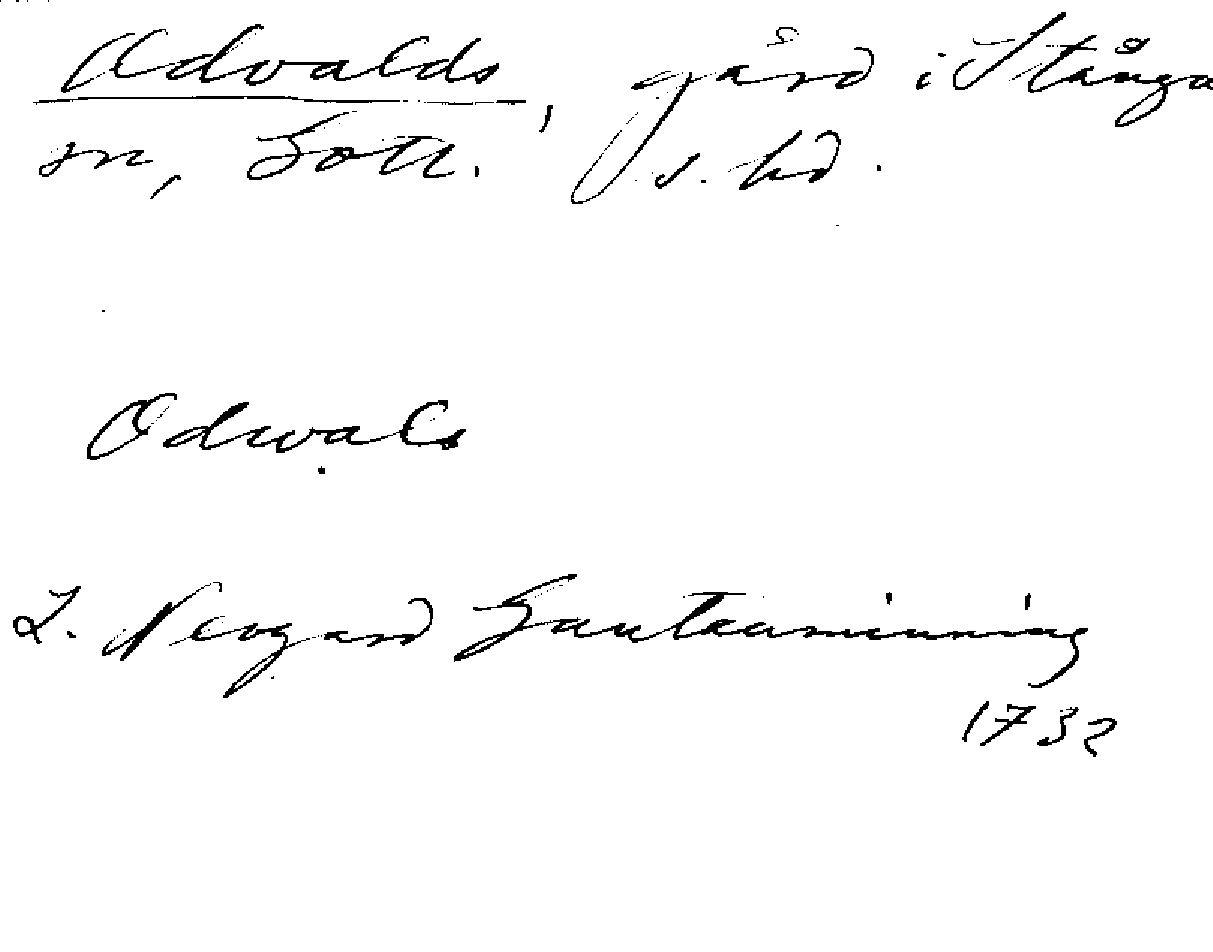 Odvalds, gård i Stånga
sn, Gotl. s. hd.
Odwals
L. Neogard Gautaminning
1732